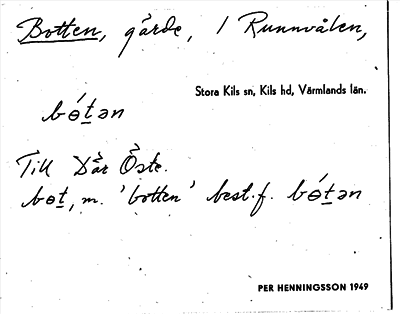 Botten, gärde, i Runnvålen,
Stora Kils sn, Kils hd, Värmlands län.
bɵ́t̲ən
Till Där Öste.
bɵt̲, m. 'botten' best. f. bɵ́t̲ən
PER HENNINGSSON 1949